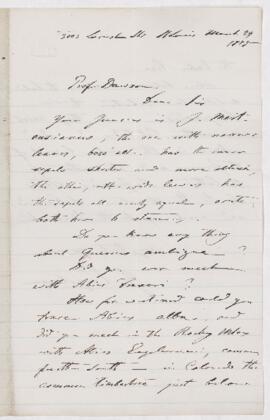 3003 Locust St St Louis March 24
1883
Prof. Dawson
Dear Sir
Your Juncus is J. Mert-
ensianus, the one with narrow
leaves, has the inner
sepals shorter and more obtuse,
the other, with wide leaves has
the sepals all nearly equal, acute;
both have 3 stamens.
Do you know any thing
about Quercus ambigua?
Did you ever meet
with Abies Fraseri?
How far westward could you
trace Abies alba, and
did you meet in the Rocky Mtns
with Abies Engelmanni, common
further South — in Colorado the
common timber tree just below